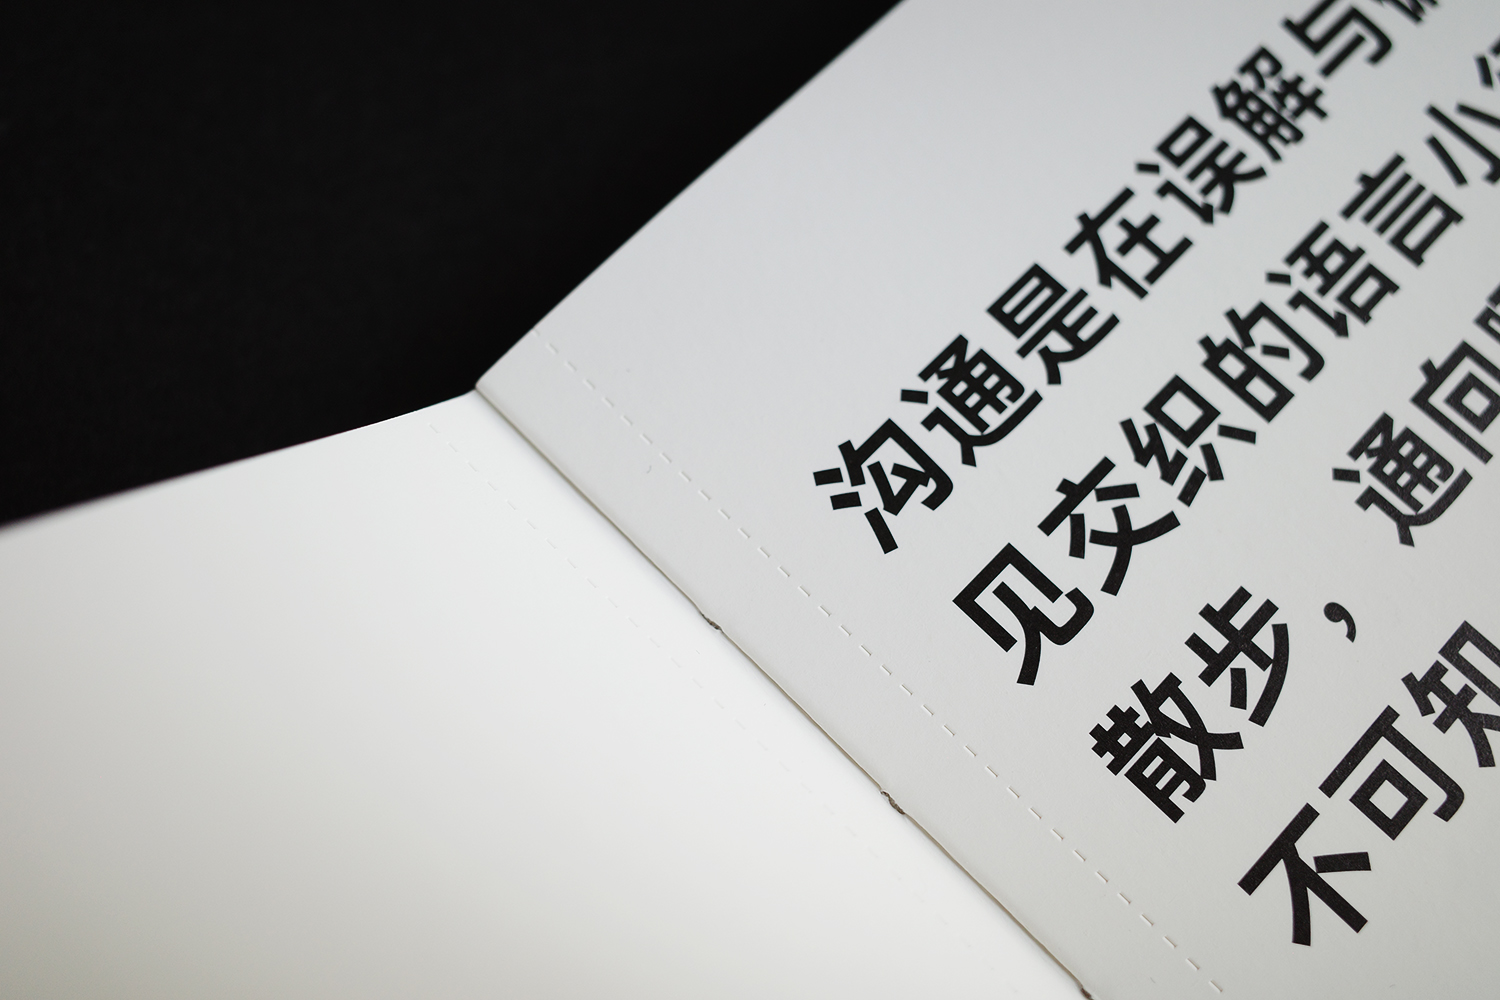 沟通是在误解与
见交织的语言小
散步， 通向
不可知